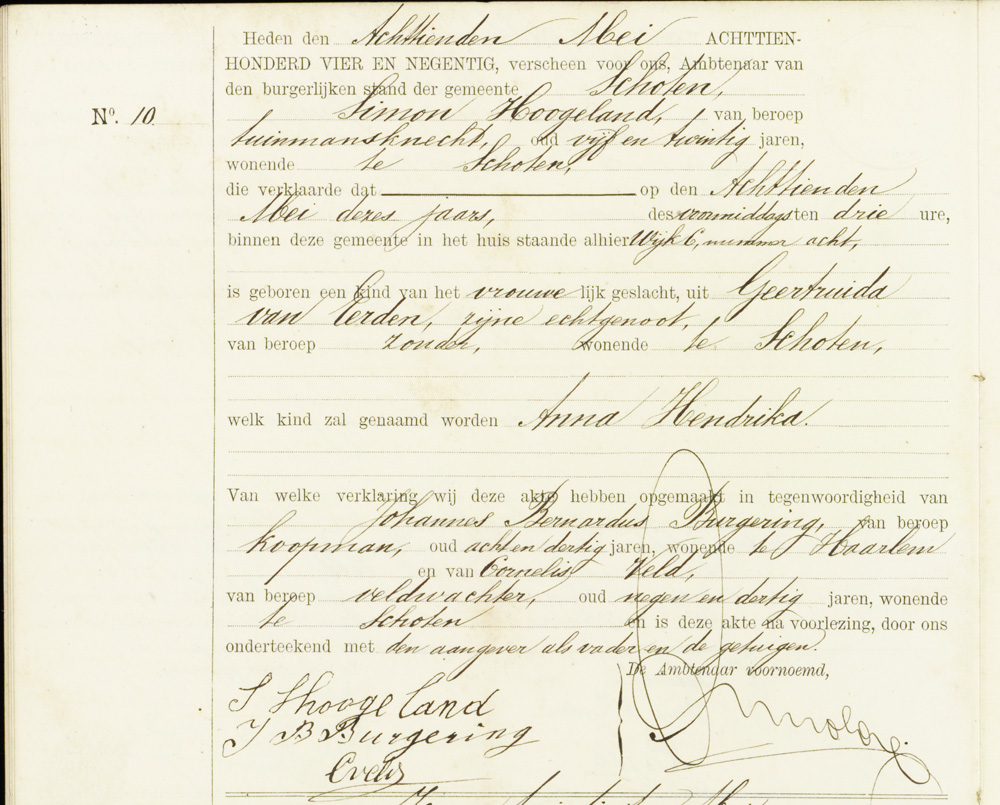 Heden den Achttienden Mei ACHTTIEN-
HONDERD VIER EN NEGENTIG, verscheen voor ons, Ambtenaar van
den burgerlijken stand der gemeente Schoten,
No. 10. Simon Hoogeland, van beroep
tuinmansknecht, oud vijf en twintig jaren,
wonende te Schoten,
die verklaarde dat op den Achttienden
Mei dezes jaars, des voormiddags ten drie ure,
binnen deze gemeente in het huis staande alhier Wijk C, nummer acht,
is geboren een kind van het vrouwelijk geslacht, uit Geertruida
van Eerden, zijne echtgenoot,
van beroep zonder, wonende te Schoten,
welk kind zal genaamd worden Anna Hendrika.
Van welke verklaring wij deze akte hebben opgemaakt in tegenwoordigheid van
Johannes Bernardus Burgering, van beroep
koopman, oud acht en dertig jaren, wonende te Haarlem
en van Cornelis Veld,
van beroep veldwachter, oud negen en dertig jaren, wonende
te Schoten en is deze akte na voorlezing, door ons
onderteekend met den aangever als vader en de getuigen.
De Ambtenaar voornoemd,
S Hoogeland
J B Burgering